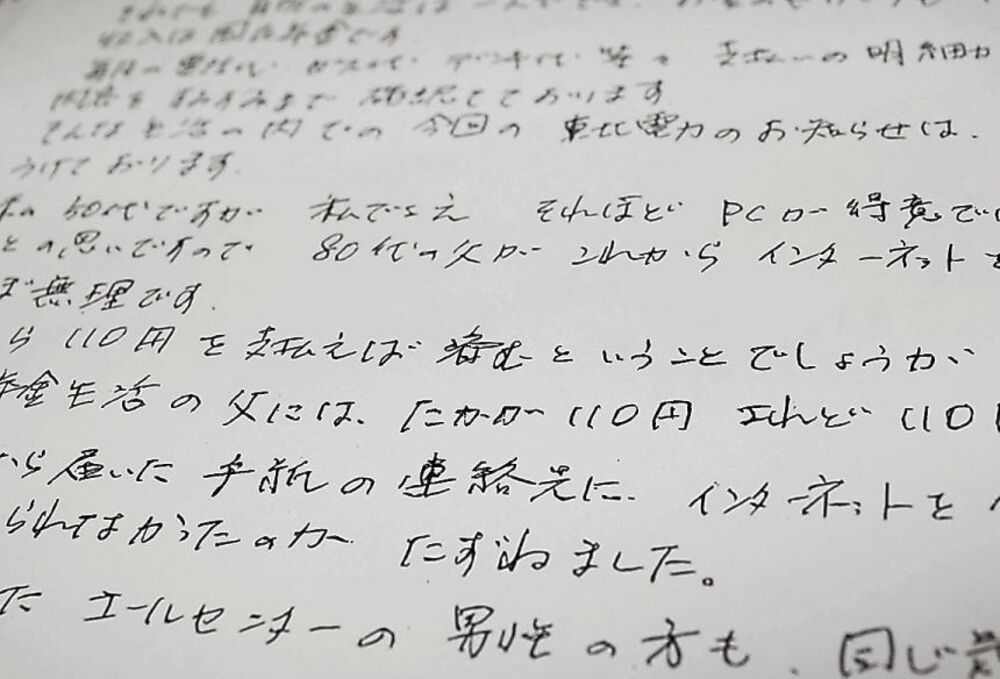 収入は国民年金です
支払いの明細
すみずみまで確認しております
そんな生活の内での今回の東北電力のお知らせは、
うけております。
50代ですが 私でさえ それほど PCが得意では
との思いですので 80代の父が これから インターネットを
無理です。
ら110円を支払えば済むということでしょうか
年金生活の父には、たかが110円 されど110
から届いた手紙の連絡先に、インターネットを
られなかったのか たずねました。
た エールセンターの男性の方も、同じ